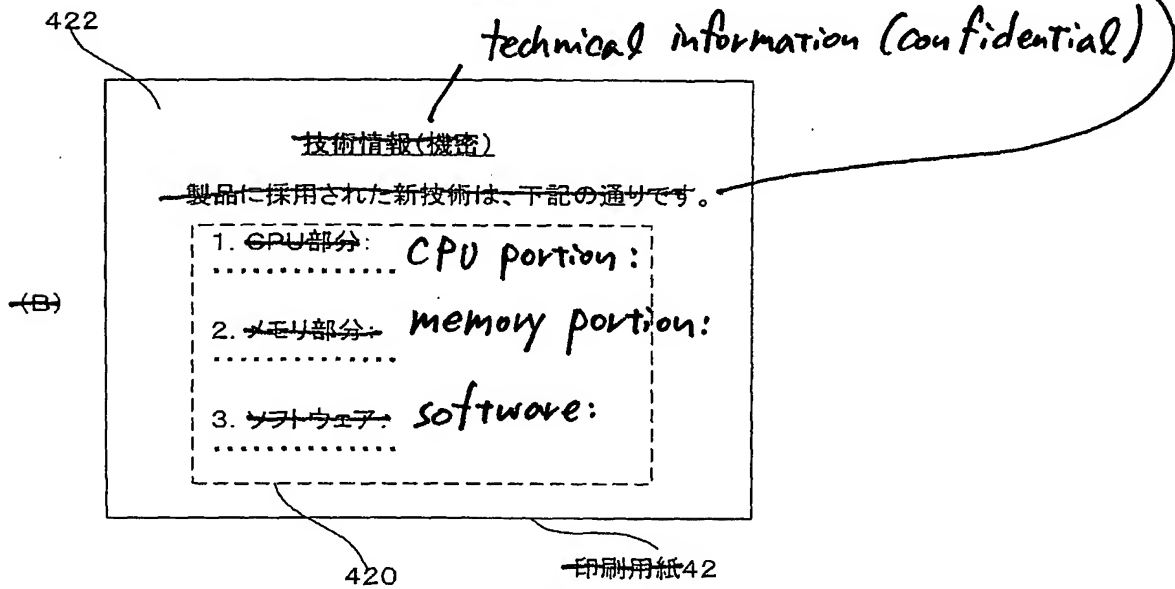 422
technical information (confidential)
技術情報(機密)
製品に採用された新技術は、下記の通りです。
1. CPU部分: CPU portion:
................
2. メモリ部分: memory portion:
................
3. ソフトウェア: software:
................
(B)
420
印刷用紙42